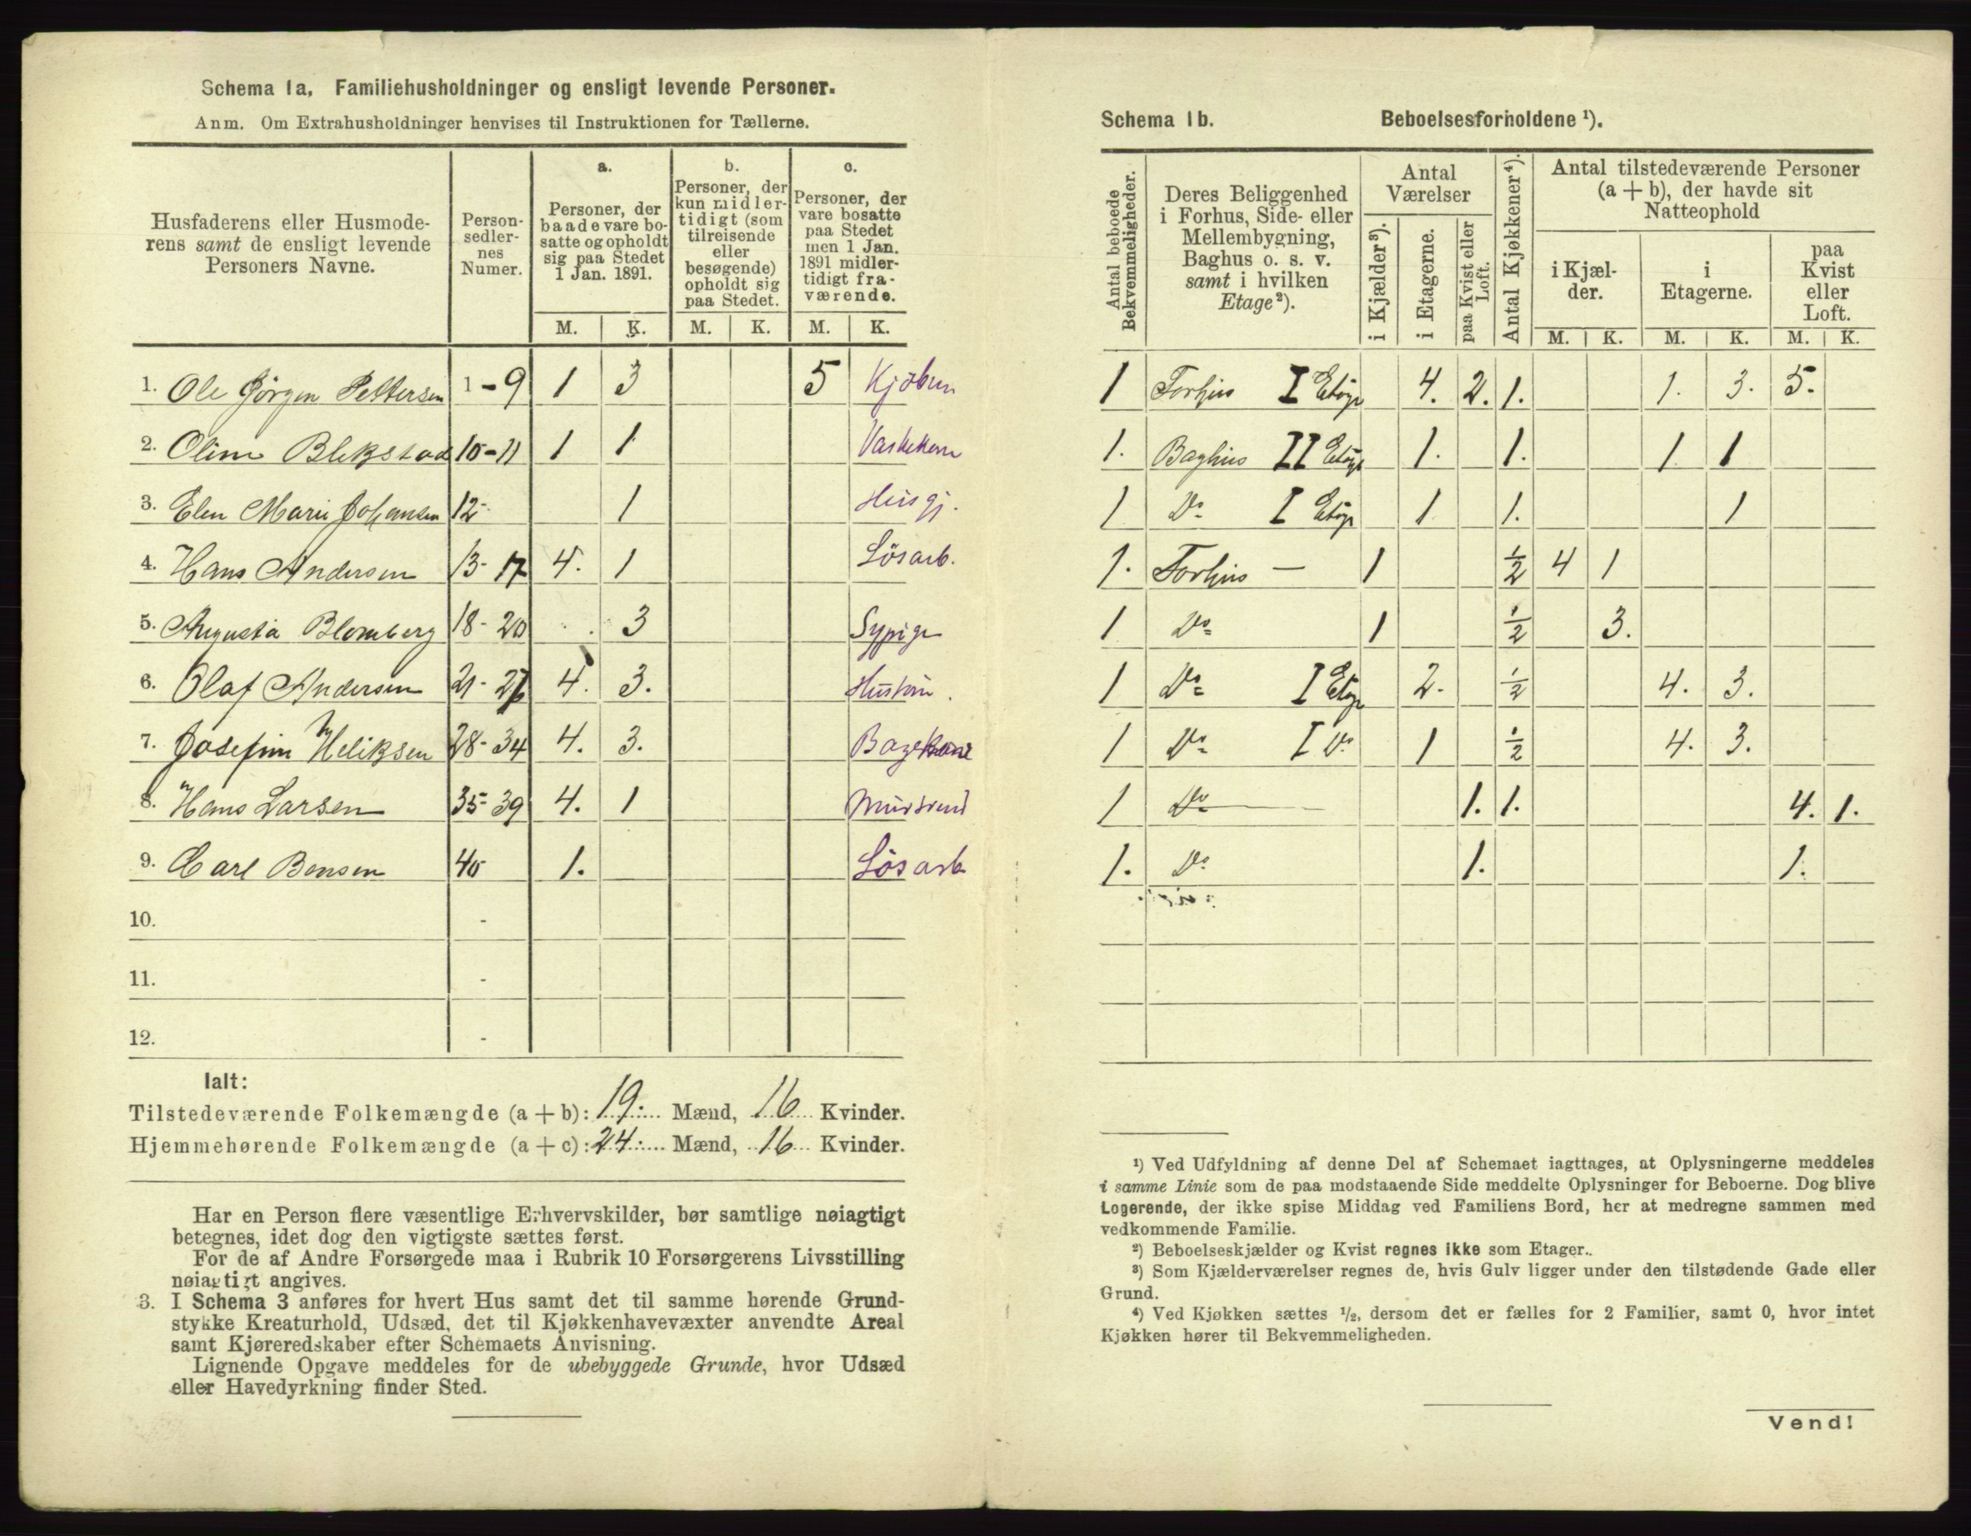 Schema 1a. Familiehusholdninger og ensligt levende Personer.
Anm. Om Extrahusholdninger henvises til Instruktionen for Tællerne.
Husfaderens eller Husmode-
rens samt de ensligt levende
Personers Navne.
Person-
sedler-
nes
Numer.
a.
Personer, der
baade vare bo-
satte og opholdt
sig paa Stedet
1 Jan. 1891.
b.
Personer, der
kun midler-
tidigt (som
tilreisende
eller
besøgende)
opholdt sig
paa Stedet.
c.
Personer, der
vare bosatte
paa Stedet
men 1 Jan.
1891 midler-
tidigt fra-
værende.
M. K. M. K. M. K.
1. Ole Jörgen Pettersen 1-9 1 3 5 Kjöbm
2. Oline Blekstad 10-11 1 1 Vaskekone
3. Elen Marie Johansen 12- 1 Husgj.
4. Hans Andersen 13-17 4. 1 Lösarb.
5. Augusta Blomberg 18-20 3 Sypige
6. Olaf Andersen 21-27 4. 3.
7. Josefine 28-34 4. 3. Bagekone
8. Hans Larsen 35-39 4. 1 MurSvend
9. Carl Bensen 40 1. Lösarb
10. -
11. -
12. -
Ialt:
Tilstedeværende Folkemængde (a + b): 19. Mænd, 16 Kvinder.
Hjemmehørende Folkemængde (a + c): 24. Mænd, 16 Kvinder.
Har en Person flere væsentlige Erhvervskilder, bør samtlige nøiagtigt
betegnes, idet dog den vigtigste sættes først.
For de af Andre Forsørgede maa i Rubrik 10 Forsørgerens Livsstilling
nøiagtigt angives.
3. I Schema 3 anføres for hvert Hus samt det til samme hørende Grund-
stykke Kreaturhold, Udsæd, det til Kjøkkenhavevæxter anvendte Areal
samt Kjøreredskaber efter Schemaets Anvisning.
Lignende Opgave meddeles for de ubebyggede Grunde, hvor Udsæd
eller Havedyrkning finder Sted.
Schema 1b. Beboelsesforholdene ¹).
Antal beboede
Bekvemmeligheder.
Deres Beliggenhed
i Forhus, Side- eller
Mellembygning,
Baghus o. s. v.
samt i hvilken
Etage ²).
Antal
Værelser
i Kjælder ³).
i Etagerne.
paa Kvist eller
Loft.
Antal Kjøkkener ⁴).
Antal tilstedeværende Personer
(a + b), der havde sit
Natteophold
i Kjæl-
der.
i
Etagerne.
paa
Kvist
eller
Loft.
M. K. M. K. M. K.
1 Forhus I Etage 4. 2. 1. 1. 3. 5.
1. Baghus II Etage 1. 1. 1 1
1 Do I Etage 1 1. 1
1. Forhus — 1 ½ 4 1
1 Do 1 ½ 3.
1 Do I Etage 2. ½ 4. 3.
1 Do I Do 1 ½ 4. 3.
1 Do 1. 1. 4. 1.
1. Do 1. 1.
¹) Ved Udfyldning af denne Del af Schemaet iagttages, at Oplysningerne meddeles
i samme Linie som de paa modstaaende Side meddelte Oplysninger for Beboerne. Dog blive
Logerende, der ikke spise Middag ved Familiens Bord, her at medregne sammen med
vedkommende Familie.
²) Beboelseskjælder og Kvist regnes ikke som Etager.
³) Som Kjælderværelser regnes de, hvis Gulv ligger under den tilstødende Gade eller
Grund.
⁴) Ved Kjøkken sættes ½, dersom det er fælles for 2 Familier, samt 0, hvor intet
Kjøkken hører til Bekvemmeligheden.
Vend!